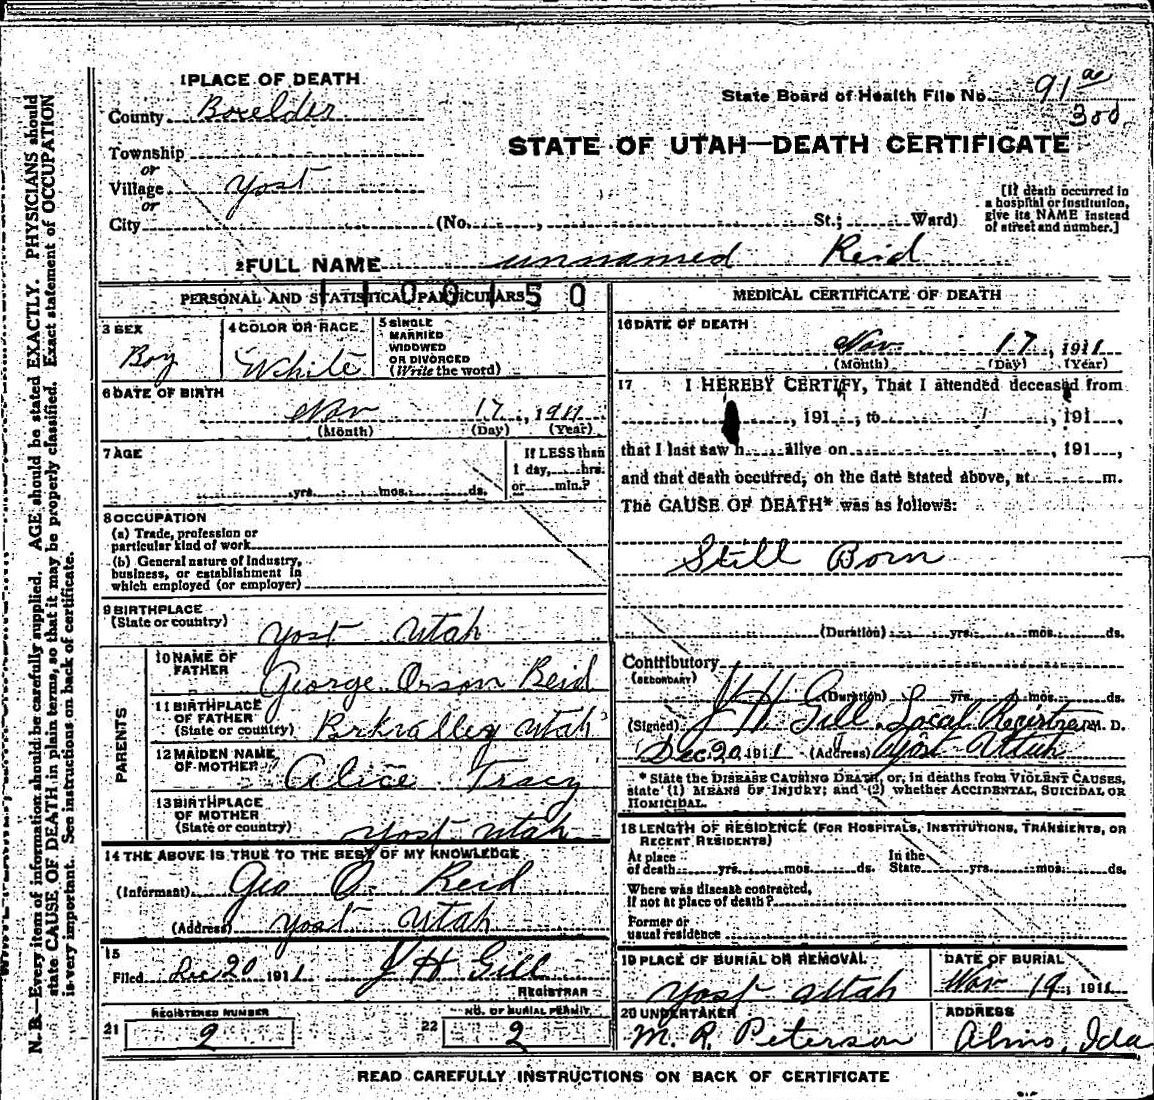 1 PLACE OF DEATH
County Boxelder
State Board of Health File No. 91 ae
300
Township
or
Village Yost
or
City (No. , St.; Ward)
STATE OF UTAH—DEATH CERTIFICATE
[If death occurred in
a hospital or institution,
give its NAME instead
of street and number.]
2 FULL NAME unnamed Reid
PERSONAL AND STATISTICAL PARTICULARS
3 SEX
Boy
4 COLOR OR RACE
White
5 SINGLE
MARRIED
WIDOWED
OR DIVORCED
(Write the word)
6 DATE OF BIRTH
Nov 17, 1911
(Month) (Day) (Year)
7 AGE
yrs. mos. ds.
If LESS than
1 day, hrs.
or min.?
8 OCCUPATION
(a) Trade, profession or
particular kind of work
(b) General nature of Industry,
business, or establishment in
which employed (or employer)
9 BIRTHPLACE
(State or country)
Yost Utah
PARENTS
10 NAME OF
FATHER
George Orson Reid
11 BIRTHPLACE
OF FATHER
(State or country)
Parkvalley Utah
12 MAIDEN NAME
OF MOTHER
Alice Tracy
13 BIRTHPLACE
OF MOTHER
(State or country)
Yost Utah
14 THE ABOVE IS TRUE TO THE BEST OF MY KNOWLEDGE
(Informant) Geo O. Reid
(Address) Yost Utah
15
Filed Dec 20 1911 J H Gill
REGISTRAR
21
REGISTERED NUMBER
2
22
NO. OF BURIAL PERMIT
2
MEDICAL CERTIFICATE OF DEATH
16 DATE OF DEATH
Nov. 17, 1911
(Month) (Day) (Year)
17 I HEREBY CERTIFY, That I attended deceased from
, 191 , to , 191 ,
that I last saw h alive on , 191 ,
and that death occurred, on the date stated above, at m.
The CAUSE OF DEATH* was as follows:
Still Born
(Duration) yrs. mos. ds.
Contributory
(SECONDARY)
(Duration) yrs. mos. ds.
(Signed) J H Gill Local Registrar M. D.
Dec 20 1911 (Address) Yost Utah
* State the DISEASE CAUSING DEATH, or, in deaths from VIOLENT CAUSES,
state (1) MEANS OF INJURY; and (2) whether ACCIDENTAL, SUICIDAL OR
HOMICIDAL.
18 LENGTH OF RESIDENCE (FOR HOSPITALS, INSTITUTIONS, TRANSIENTS, OR
RECENT RESIDENTS)
At place
of death yrs. mos. ds.
In the
State yrs. mos. ds.
Where was disease contracted,
if not at place of death?
Former or
usual residence
19 PLACE OF BURIAL OR REMOVAL
Yost Utah
DATE OF BURIAL
Nov 19, 1911
20 UNDERTAKER
M. R. Peterson
ADDRESS
Almo, Ida
READ CAREFULLY INSTRUCTIONS ON BACK OF CERTIFICATE
N. B.—Every item of information should be carefully supplied. AGE should be stated EXACTLY. PHYSICIANS should
state CAUSE OF DEATH in plain terms, so that it may be properly classified. Exact statement of OCCUPATION
is very important. See instructions on back of certificate.